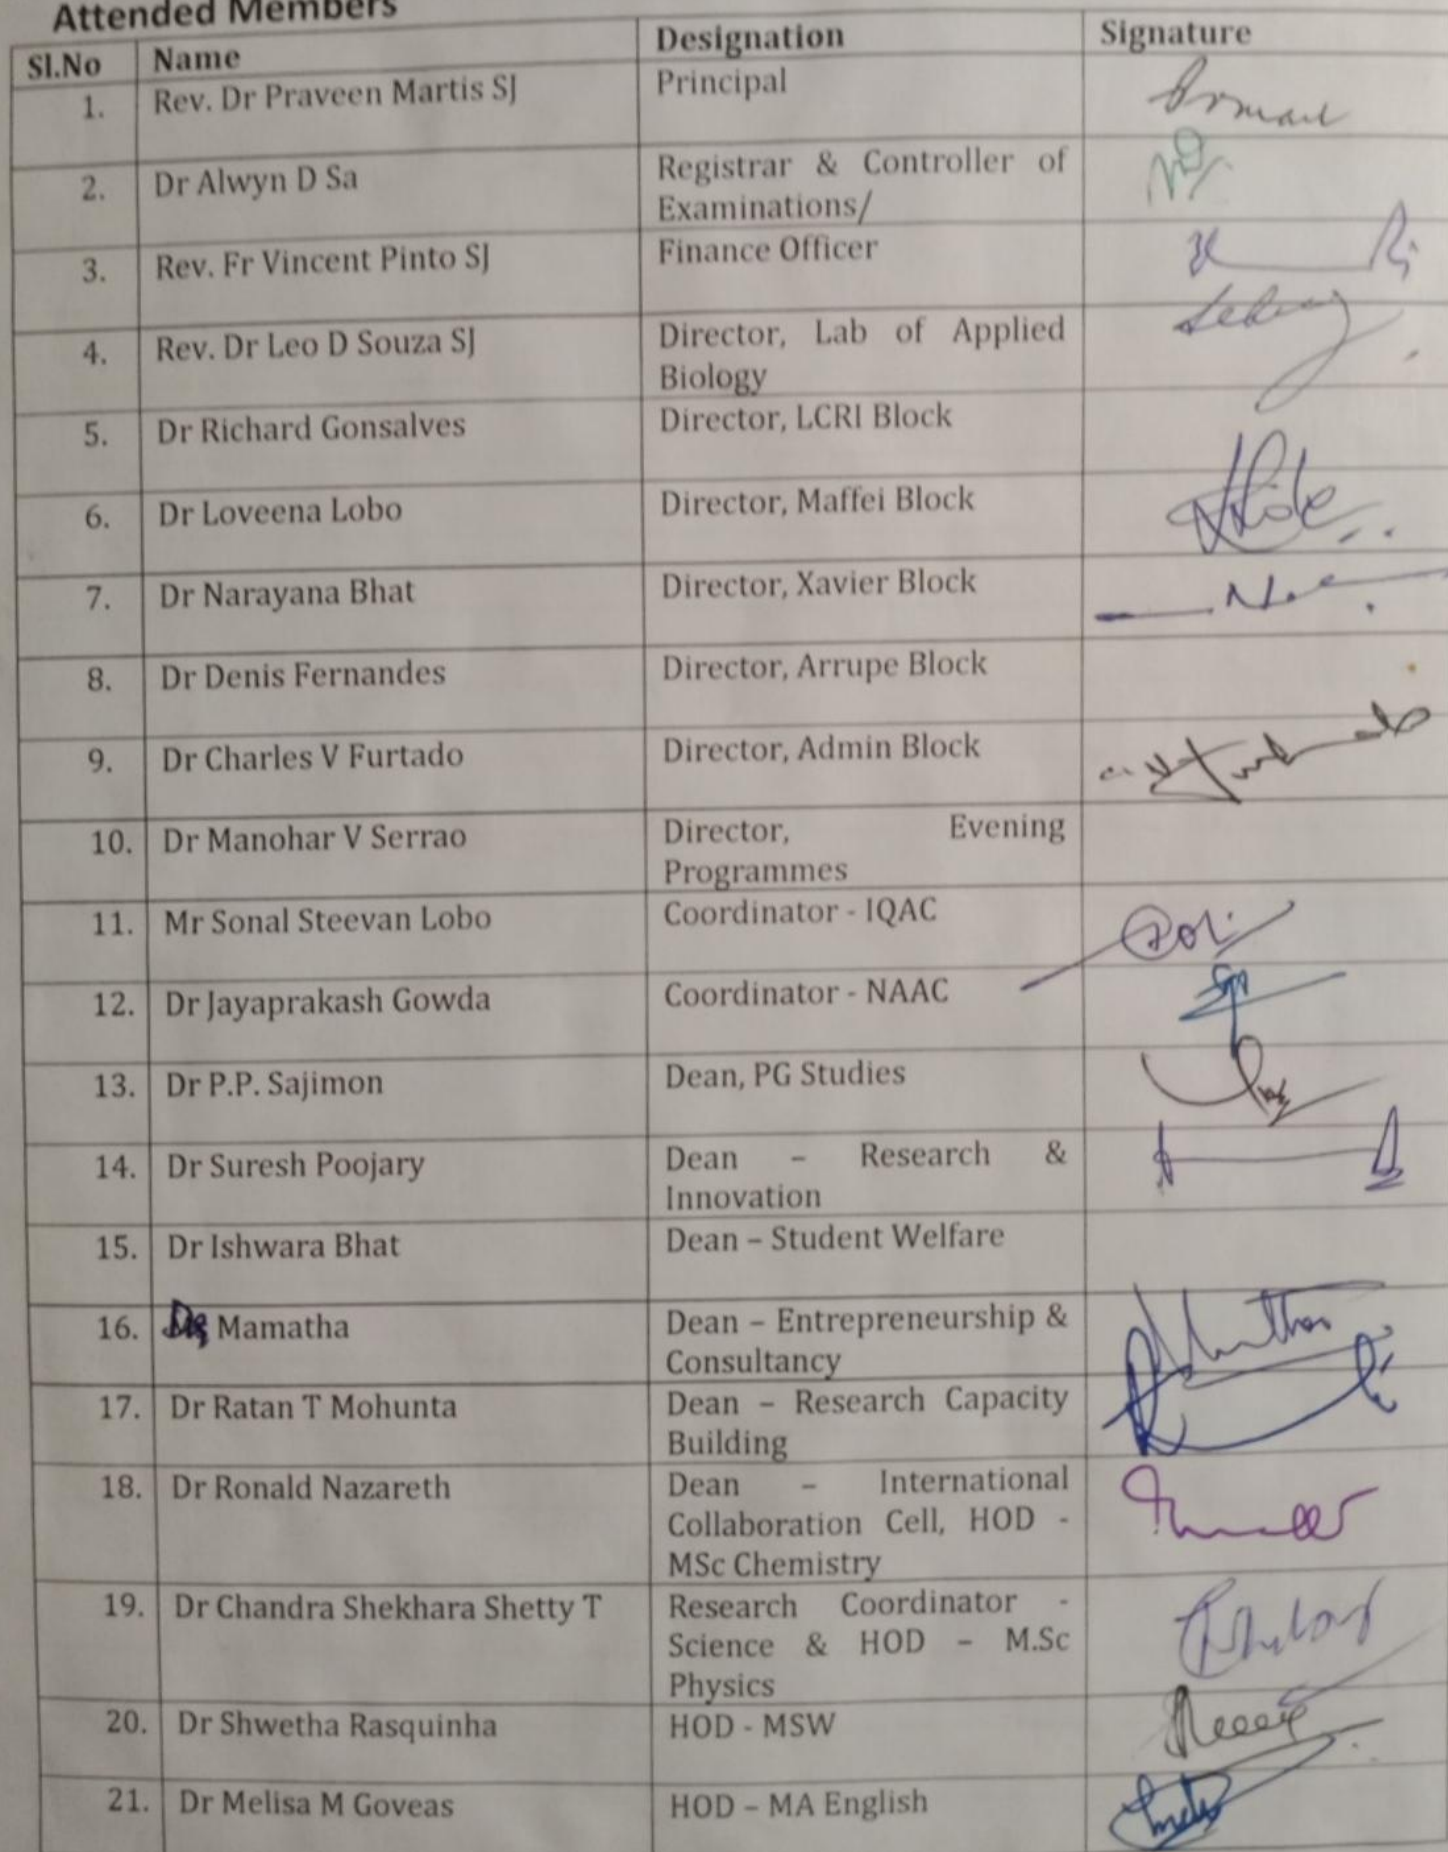 Attended Members
Sl.No Name Designation Signature
1. Rev. Dr Praveen Martis SJ Principal
2. Dr Alwyn D Sa Registrar & Controller of
Examinations/
3. Rev. Fr Vincent Pinto SJ Finance Officer
4. Rev. Dr Leo D Souza SJ Director, Lab of Applied
Biology
5. Dr Richard Gonsalves Director, LCRI Block
6. Dr Loveena Lobo Director, Maffei Block
7. Dr Narayana Bhat Director, Xavier Block
8. Dr Denis Fernandes Director, Arrupe Block
9. Dr Charles V Furtado Director, Admin Block
10. Dr Manohar V Serrao Director, Evening
Programmes
11. Mr Sonal Steevan Lobo Coordinator - IQAC
12. Dr Jayaprakash Gowda Coordinator - NAAC
13. Dr P.P. Sajimon Dean, PG Studies
14. Dr Suresh Poojary Dean – Research &
Innovation
15. Dr Ishwara Bhat Dean – Student Welfare
16. Mamatha Dean – Entrepreneurship &
Consultancy
17. Dr Ratan T Mohunta Dean – Research Capacity
Building
18. Dr Ronald Nazareth Dean – International
Collaboration Cell, HOD -
MSc Chemistry
19. Dr Chandra Shekhara Shetty T Research Coordinator -
Science & HOD – M.Sc
Physics
20. Dr Shwetha Rasquinha HOD - MSW
21. Dr Melisa M Goveas HOD – MA English